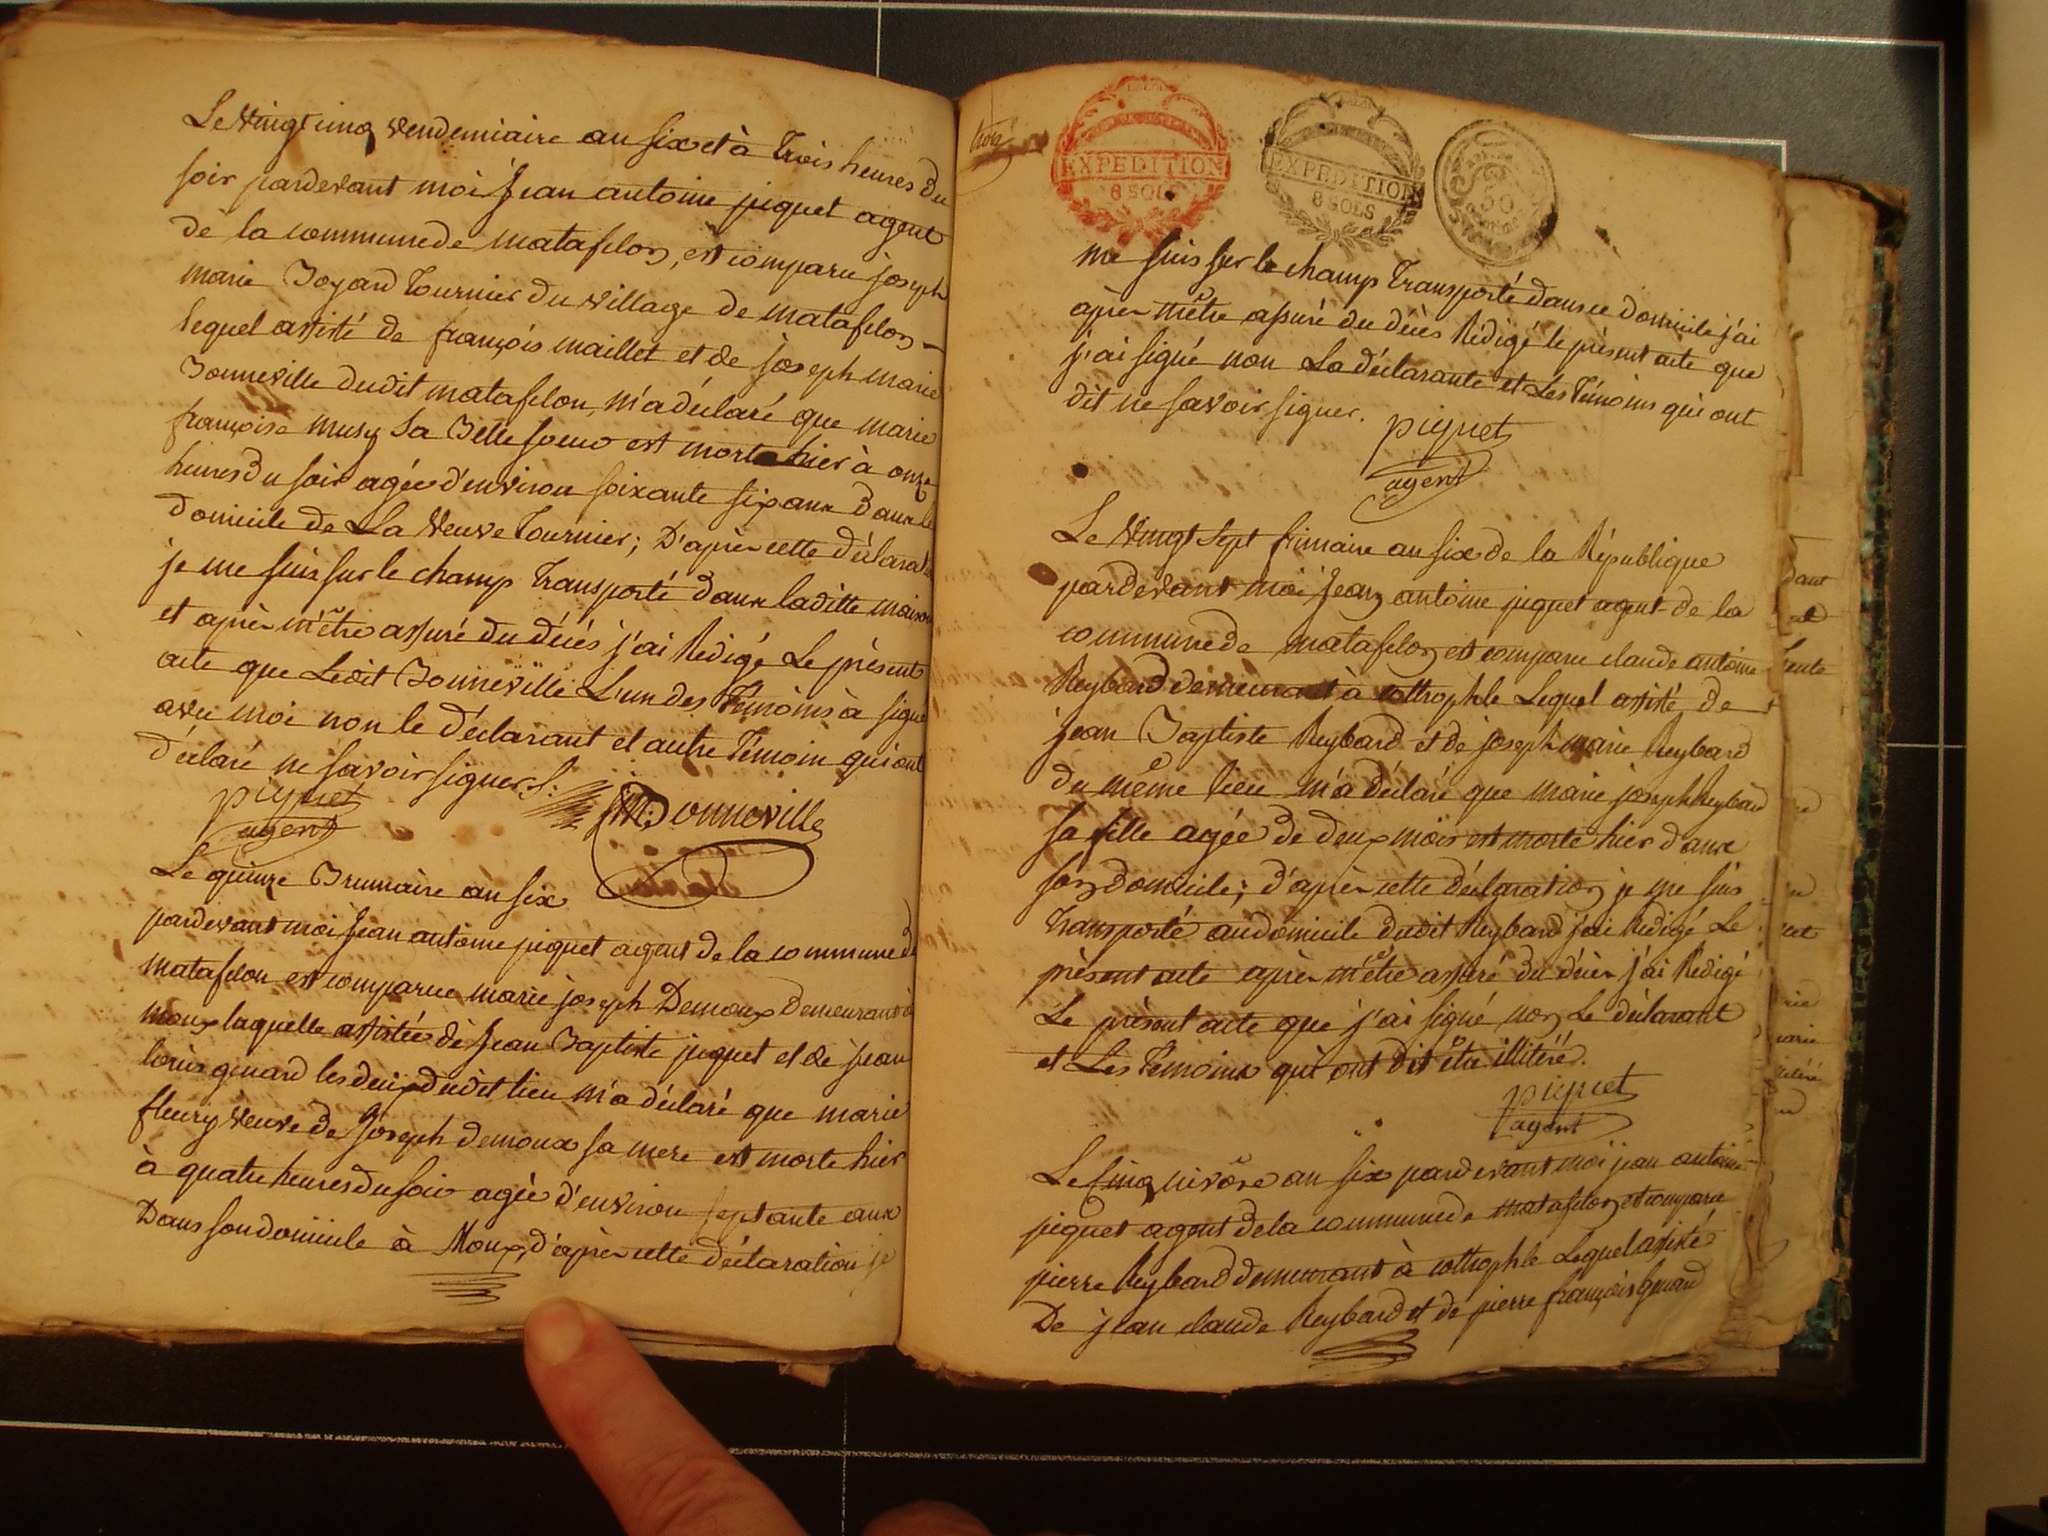 Le vingt cinq vendemiaire an six et à trois heures du
soir pardevant moi Jean antoine piquet agent
de la commune de matafelon, est comparu joseph
marie Boyard Tournier du village de matafelon
lequel assisté de françois maillet et de joseph marie
Bonneville dudit matafelon, m'a déclaré que marie
françoise musy sa Belle soeur est morte hier à onze
heures du soir agée d'environ soixante six ans dans le
domicile de La veuve Tournier; D'après cette déclarat.
je me suis sur le champ transporté dans laditte maison
et après m'être assuré du décès j'ai Rédigé Le présent
acte que Ledit Bonneville L'un des Témoins à signé
avec moi non le déclarant et autre Témoin qui ont
déclaré ne savoir signer.
piquet
agent
JM: Bonneville
Le quinze Brumaire an six
pardevant moi Jean antoine piquet agent de la commune de
matafelon est comparue marie joseph Demoux demeurant à
moux laquelle assistée de Jean Baptiste piquet et de jean
louis guard les deux dudit lieu m'a déclaré que marie
fleury veuve de Joseph demoux sa mere est morte hier
à quatre heures du soir agée d'environ septante ans
Dans son domicile à Moux, d'après cette déclaration je
trois
EXPEDITION
8 SOLS
EXPEDITION
8 SOLS
50
me suis sur le champ Transporté dans ce domicile j'ai
après m'être assuré du décès Rédigé le présent acte que
j'ai signé non La déclarante et Les Témoins qui ont
dit ne savoir signer.
piquet
agent
Le vingt sept frimaire an six de la République
pardevant moi Jean antoine piquet agent de la
commune de matafelon est comparu claude antoine
Reybard demeurant à cottrophle Lequel assisté de
jean Baptiste Reybard et de joseph marie Reybard
du même lieu m'a déclaré que marie joseph Reybard
sa fille agée de deux mois est morte hier dans
son domicile; d'après cette déclaration je me suis
transporté au domicile dudit Reybard j'ai Rédigé Le
présent acte après m'être assuré du décès j'ai Rédigé
Le présent acte que j'ai signé non Le déclarant
et Les Témoins qui ont dit être illitéré.
piquet
agent
Le cinq nivôse an six pardevant moi jean antoine
piquet agent de la commune de matafelon est comparu
pierre Reybard demeurant à cottrophle Lequel assisté
De jean claude Reybard et de pierre françois guard